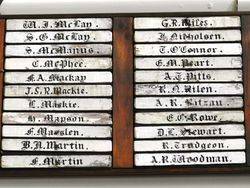 W. J. McLay.
S. G. McLay.
S. McManus.
C. McPhee.
F. A. Mackay
J. S. R. Mackie.
L. Maskie.
H. Mapson.
F. Marslen.
B. A. Martin.
F. Martin
G. R. Niles.
J. Nicholsen.
T. O'Connor.
G. M. Peart.
A. T. Pitts.
R. N. Rilen.
A. R. Rotzau.
E. C. Rowe.
D. L. Stewart.
R. Trudgeon.
A. R. Woodman.